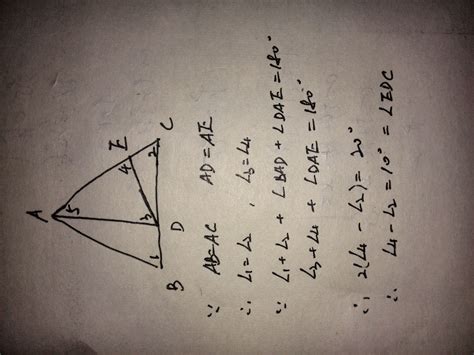 A
5
E
4
C
2
3
D
1
B
∵ AB=AC AD=AE
∴ ∠1=∠2 , ∠3=∠4
∵ ∠1+∠2+∠BAD+∠DAE=180°
∠3+∠4+∠DAE=180°
∴ 2(∠4-∠2)=20°
∴ ∠4-∠2=10°=∠EDC